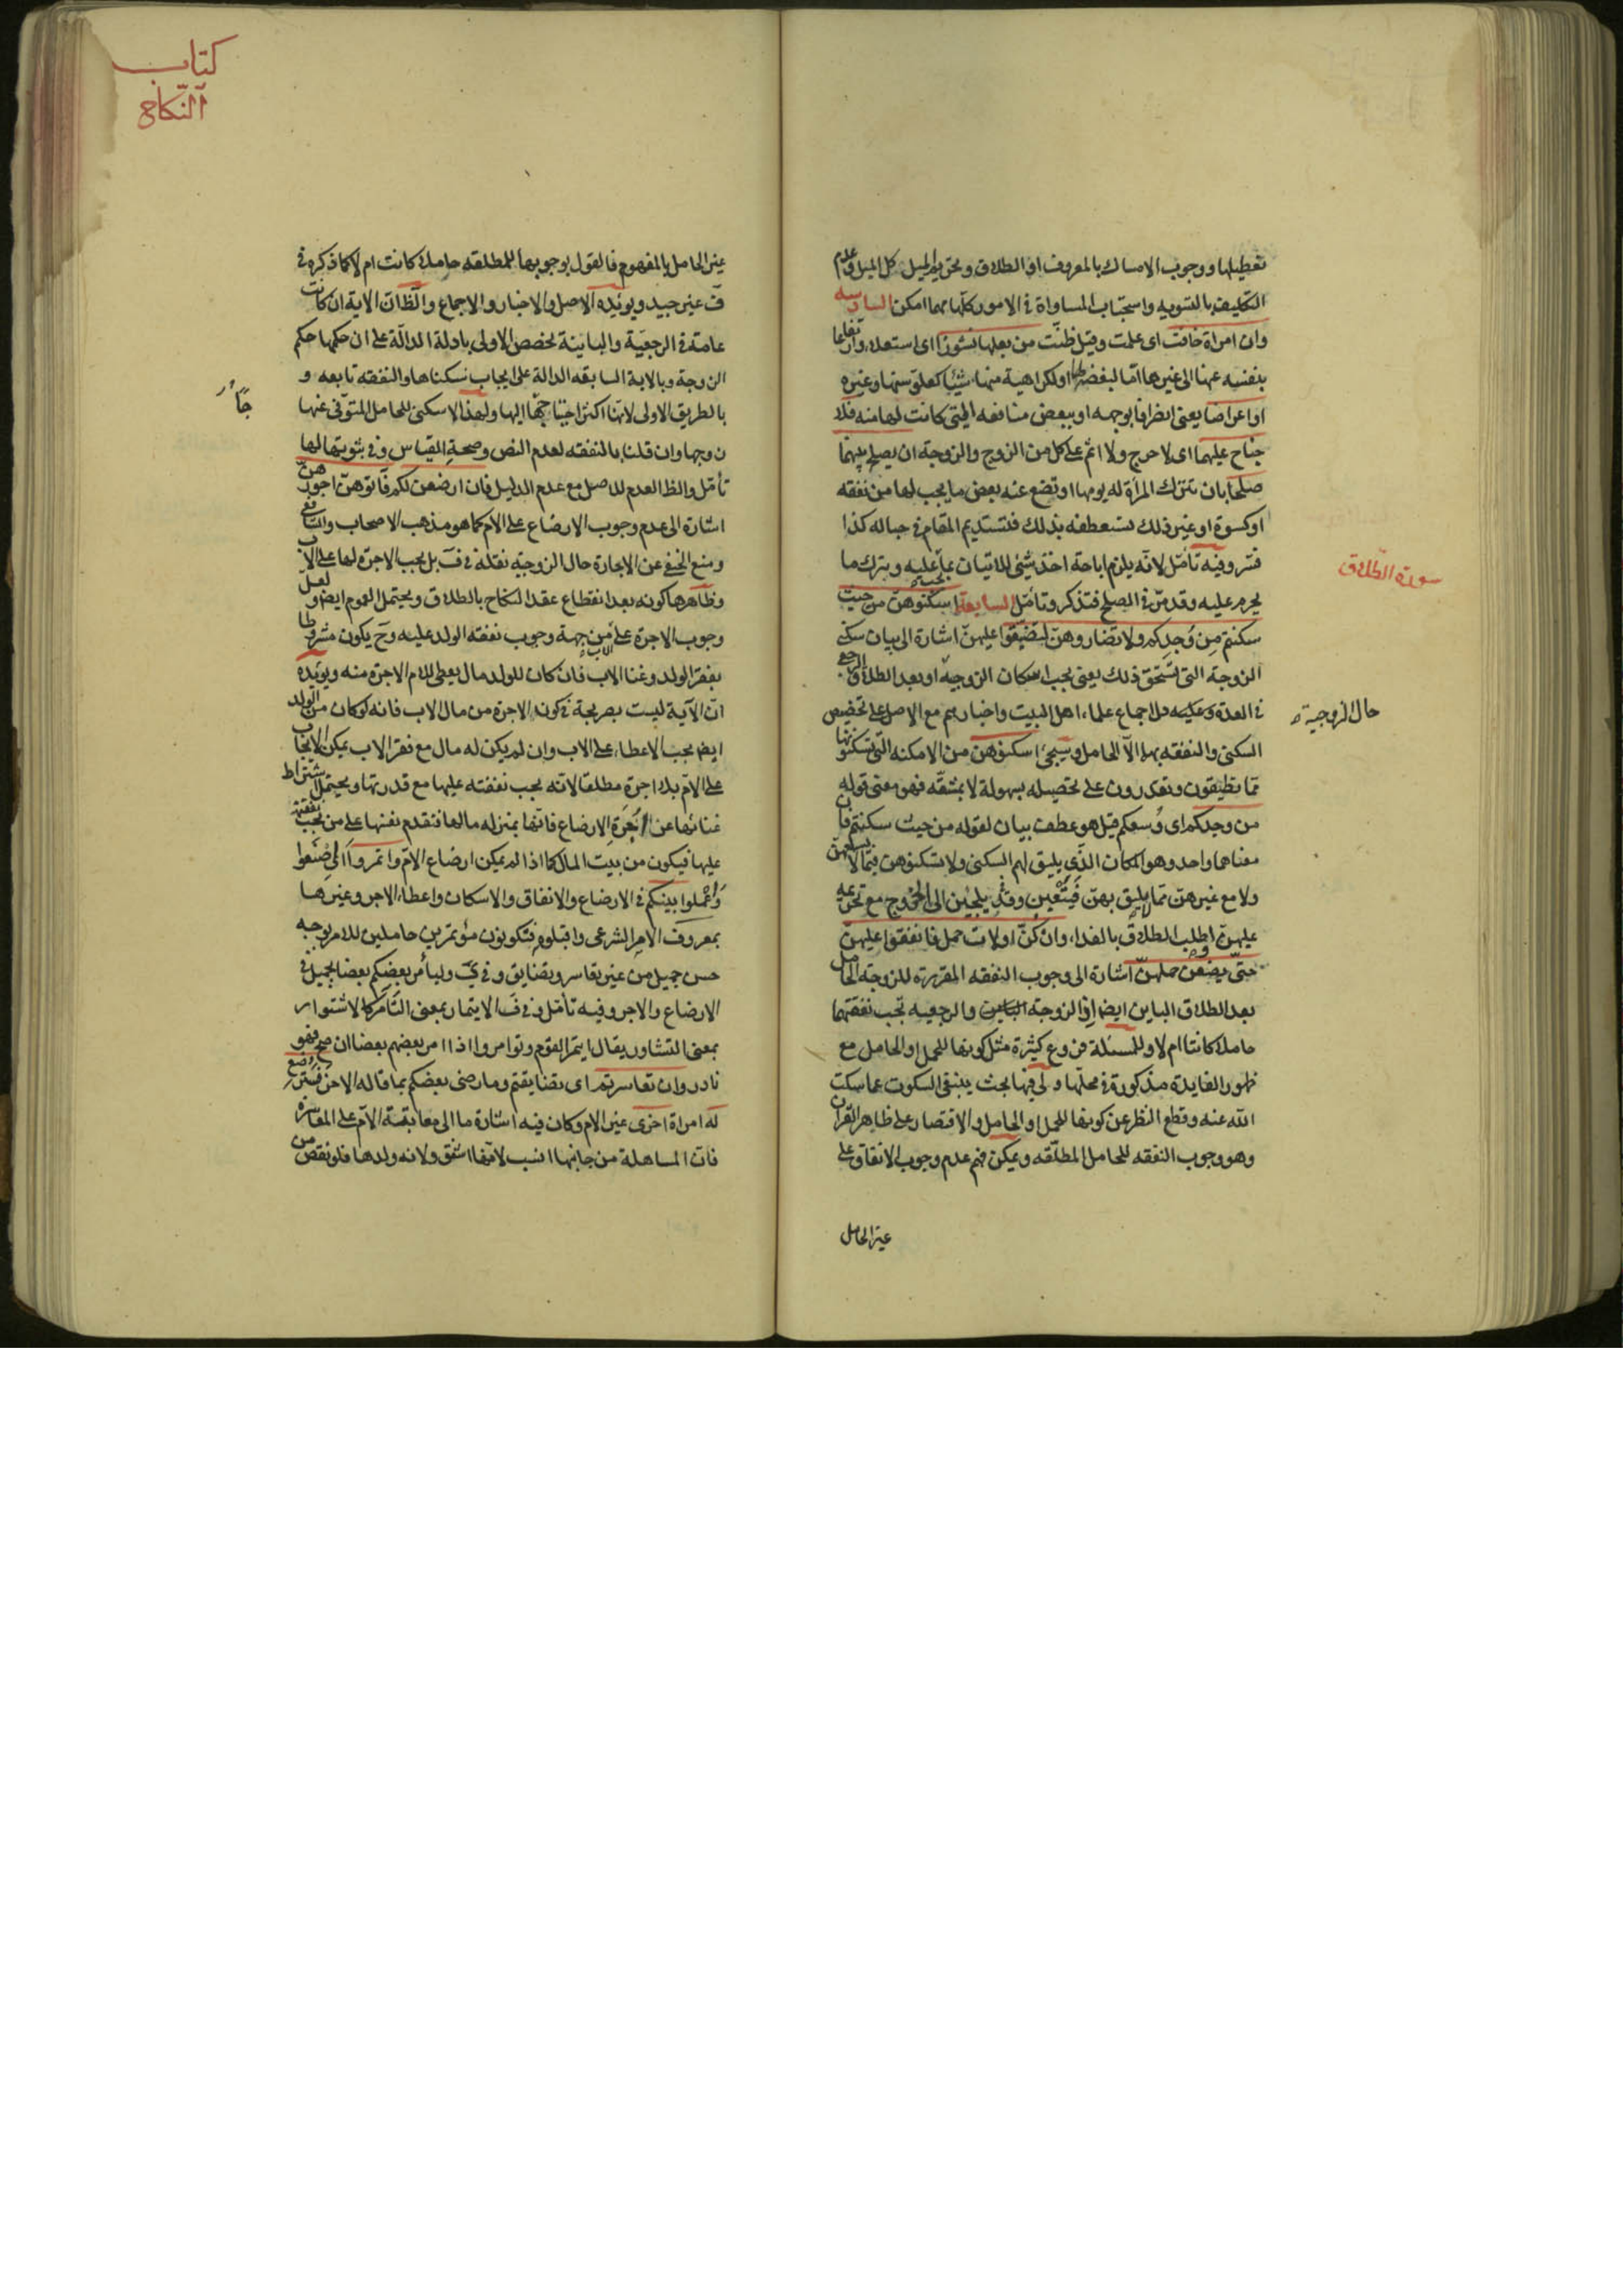 تعطيلها ووجوب الامساك بالمعروف او الطلاق وتحريم الميل كل الميل وعدم
التكليف بالتسويه واستحباب المساواة فى الامور كلّها مهما امكن السادسه
وان امراة خافت اى علمت وقيل ظنّت من بعلها نشوزا اى استعلاء وارتفاعا
بنفسه عنها الى غيرها امّا لبغضه لها او لكراهية منها شيئا كعلوّ سنها وغيره
او اعراضا يعنى انصرافا بوجهه او ببعض منافعه التى كانت لها منه فلا
جناح عليهما اى لا حرج ولا اثم على كل من الزوج والزوجة ان يصلح بينهما
صلحا بان تترك المراة له يومها او تضع عنه بعض ما يجب لها من نفقه
او كسوة او غير ذلك تستعطفه بذلك فتستديم المقام فى حباله كذا
فسّر وفيه تأمّل لانّه يلزم اباحة اخذ شيئى للاتيان بما يجب عليه وبترك ما
يحرم عليه وقد مرّ فى الصلح فتذكر وتأمّل السابعة اسكنوهنّ من حيث
سكنتم من وُجدِكم ولا تضاروهنّ لتضيّقوا عليهنّ اشارة الى بيان سكنى
الزوجة التى تستحق ذلك يعنى يجب اسكان الزوجية او بعد الطلاق الرجعى
فى العدة وعليه دلّ اجماع علماء اهل البيت واخبارهم مع الاصل على تخصيص
السكنى والنفقه بها الّا الحامل وسيجئ اسكنوهن من الامكنه الّتى تسكنونها
ممّا تطيقون وتقدرون على تحصيله بسهولة لا بمشقّه فهو معنى قوله
من وجدكم اى وُسعكم قيل هو عطف بيان لقوله من حيث سكنتم فان
معناهما واحد وهو المكان الذى يليق لهم السكنى ولا تسكنوهن فيما لا يسعهنّ
ولا مع غيرهنّ ممّا لا يليق بهنّ فيتعبن وقد يلجئن الى الخروج مع تحريمه
عليهنّ او طلب الطلاق بالفداء وان كنّ اولات حمل فانفقوا عليهن
حتّى يضعن حملهنّ اشارة الى وجوب النفقه المقررة للزوجة الحامل
بعد الطلاق الباين ايضا اذ الزوجة والرجعيه تجب نفقتهما
حاملا كانتا ام لا وللمسئلة فروع كثيرة مثل كونها للحمل او الحامل مع
ظهور الفايدة مذكورة فى محلّها ولى فيها بحث ينبغى السكوت عما سكت
الله عنه وقطع النظر عن كونها للحمل او الحامل والاقتصار على ظاهر القرآن
وهو وجوب النفقه للحامل المطلّقه ويمكن فهم عدم وجوب الانفاق على
غير الحامل
سورة الطلاق
حال الزوجية
كتاب
النّكاح
غير الحامل بالمفهوم فالقول بوجوبها للمطلقه حاملا كانت ام لا كما ذكره فى
ف غير جيد ويؤيّده الاصل والاخبار والاجماع والظّ انّ الاية ان كانت
عامة فى الرجعيّة والباينة تخصص الاولى بادلة الدالّة على ان حكمها حكم
الزوجة وبالاية السابقه الدالة على ايجاب سكناها والنفقه تابعه و
بالطريق الاولى لانّها اكثر احتياجها اليها ولهذا لا سكنى للحامل المتوّفى عنها
زوجها وان قلنا بالنفقه لعدم النص وصحة القياس وفى ثبوتها لها
تأمّل والظ العدم للاصل مع عدم الدليل فان ارضعن لكم فآتوهنّ اجورهنّ
اشارة الى عدم وجوب الارضاع على الام كما هو مذهب الاصحاب والشافعى
ومنع الحنفى عن الاجارة حال الزوجيّة نقله فى ف بل يجب الاجرة لها على الاب
وظاهرها كونه بعد انقطاع عقد النكاح بالطلاق ويحتمل العموم ايض ولعلّ
وجوب الاجرة على الاب من جهة وجوب نفقه الولد عليه وح يكون مشروطا
بفقر الولد وغنا الاب فان كان للولد مال يعطى للام الاجرة منه ويؤيّده
انّ الآية ليست بصريحة فى كون الاجرة من مال الاب فانه لو كان من الولد
ايض يجب الاعطاء على الاب وان لم يكن له مال مع فقر الاب يمكن الايجاب
على الامّ بلا اجرة مطلقا لانّه يجب نفقته عليها مع قدرتها ويحتمل اشتراط
غنائها عن اُجرة الارضاع فانّها بمنزله مالها فتقدم نفسها على من تجب نفقته
عليها فيكون من بيت المال كما اذا لم يمكن ارضاع الام وأتمروا اى اصنعوا
واعملوا بينكم فى الارضاع والانفاق والاسكان واعطاء الاجر وغيرها
بمعروف الامر الشرعى واقبلوه فتكونون مؤتمرين حاملين للامر بوجه
حسن جميل من غير تعاسر وتضايق وفى ى وليأمر بعضكم بعضا بجميل فى
الارضاع والاجر وفيه تأمّل وفى ف الايتمار بمعنى التّآمر كالاشتوار
بمعنى التشاور يقال ايتمر القوم وتوامروا اذا امر بعضهم بعضا ان صح فهو
نادر وان تعاسرتم اى تضايقتم وما رضى بعضكم بما قاله الاخر فسترضع
له امراة اخرى غير الام وكان فيه اشارة ما الى معاتبة الامّ على المعاسرة
فان المساهلة من جانبها انسب لانّها اشفق ولانه ولدها فلو نقص من